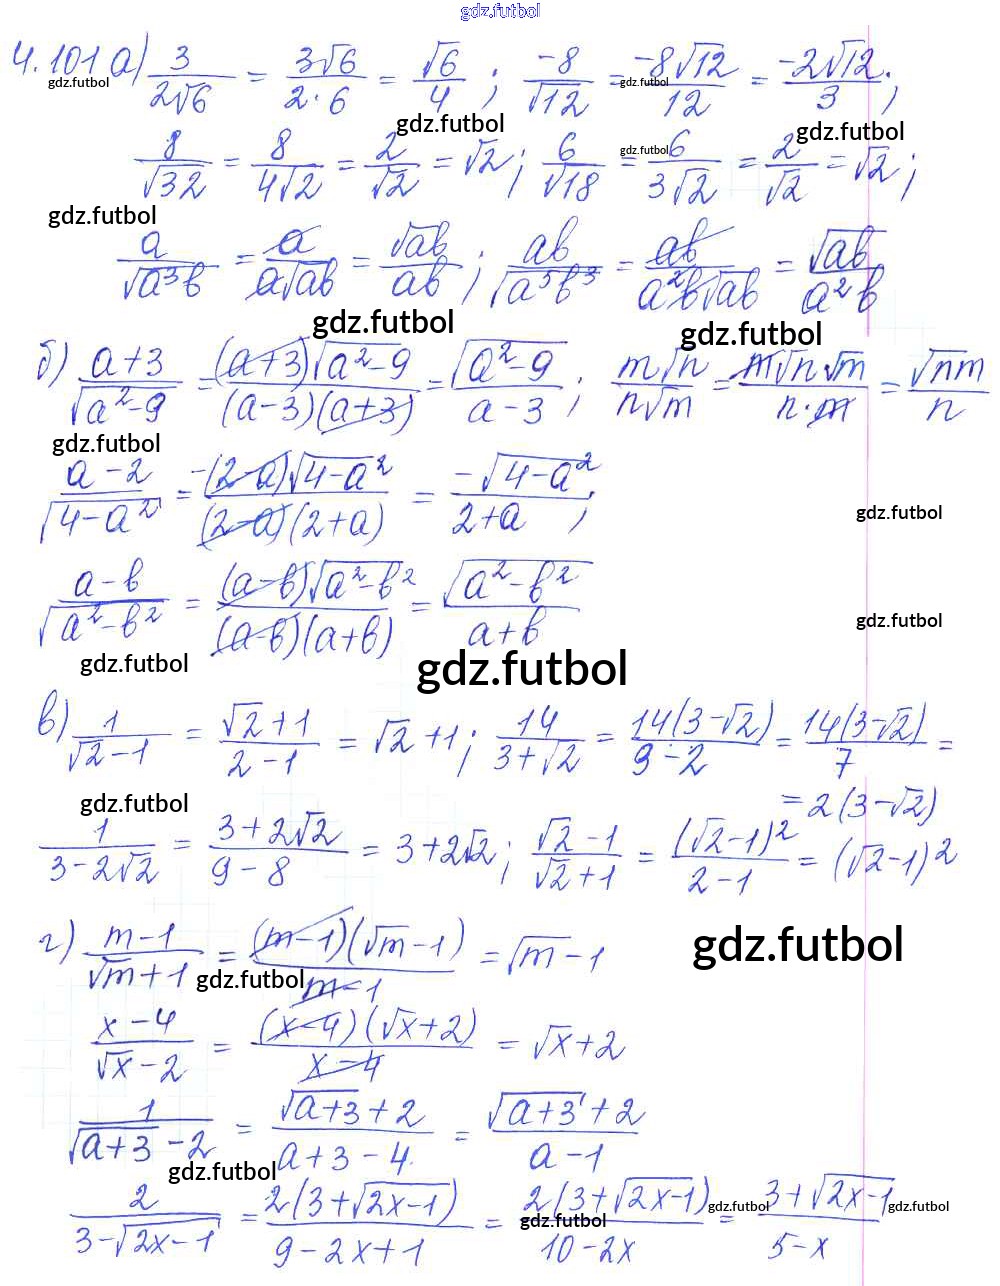 gdz.futbol
4.101 а) 3/(2√6) = 3√6/(2·6) = √6/4 ; -8/√12 = -8√12/12 = -2√12/3 ;
gdz.futbol gdz.futbol
gdz.futbol gdz.futbol
8/√32 = 8/(4√2) = 2/√2 = √2 ; 6/√18 = 6/(3√2) = 2/√2 = √2 ;
gdz.futbol
gdz.futbol
a/√(a³b) = a/(a√(ab)) = √(ab)/(ab) ; ab/√(a⁵b³) = ab/(a²b√(ab)) = √(ab)/(a²b)
gdz.futbol gdz.futbol
б) (a+3)/√(a²-9) = (a+3)√(a²-9)/((a-3)(a+3)) = √(a²-9)/(a-3) ; m√n/(n√m) = m√n√m/(n·m) = √(nm)/n
gdz.futbol
(a-2)/√(4-a²) = -(2-a)√(4-a²)/((2-a)(2+a)) = -√(4-a²)/(2+a) ;
gdz.futbol
(a-b)/√(a²-b²) = (a-b)√(a²-b²)/((a-b)(a+b)) = √(a²-b²)/(a+b)
gdz.futbol
gdz.futbol gdz.futbol
в) 1/(√2-1) = (√2+1)/(2-1) = √2+1 ; 14/(3+√2) = 14(3-√2)/(9-2) = 14(3-√2)/7 =
= 2(3-√2)
gdz.futbol
1/(3-2√2) = (3+2√2)/(9-8) = 3+2√2 ; (√2-1)/(√2+1) = (√2-1)²/(2-1) = (√2-1)²
г) (m-1)/(√m+1) = (m-1)(√m-1)/(m-1) = √m-1
gdz.futbol gdz.futbol
(x-4)/(√x-2) = (x-4)(√x+2)/(x-4) = √x+2
1/(√(a+3)-2) = (√(a+3)+2)/(a+3-4) = (√(a+3)+2)/(a-1)
gdz.futbol
2/(3-√(2x-1)) = 2(3+√(2x-1))/(9-2x+1) = 2(3+√(2x-1))/(10-2x) = (3+√(2x-1))/(5-x)
gdz.futbol gdz.futbol gdz.futbol